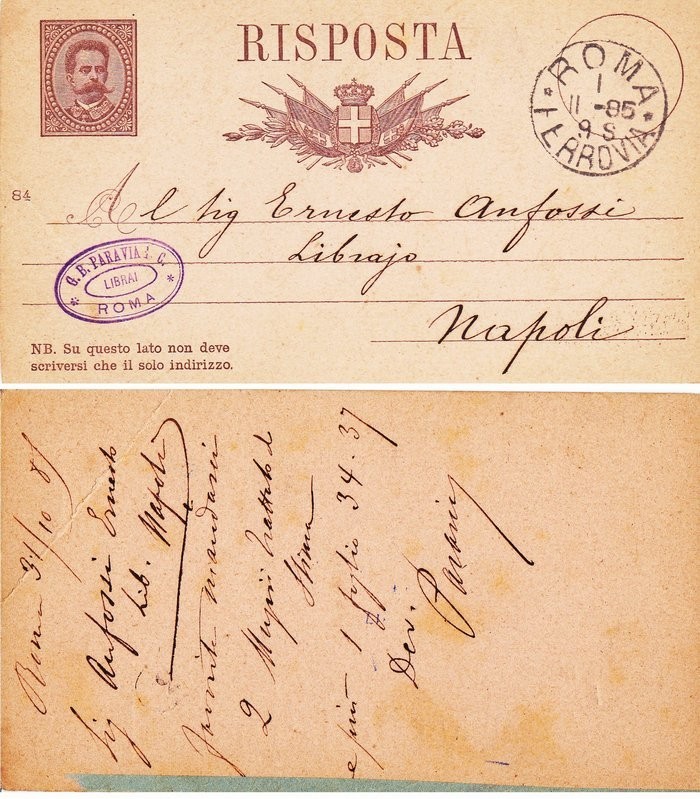 RISPOSTA
ROMA
1
11 - 85
9 S
FERROVIA
84
Al Sig Ernesto Anfossi
Librajo
Napoli
G. B. PARAVIA E C.
LIBRAI
ROMA
NB. Su questo lato non deve
scriversi che il solo indirizzo.
Roma 31/10 85
Sig Anfossi Ernesto
Lib. Napoli
favorite mandarci
2 Stima
e più 1 foglio 34-37
Dev.
Paravia